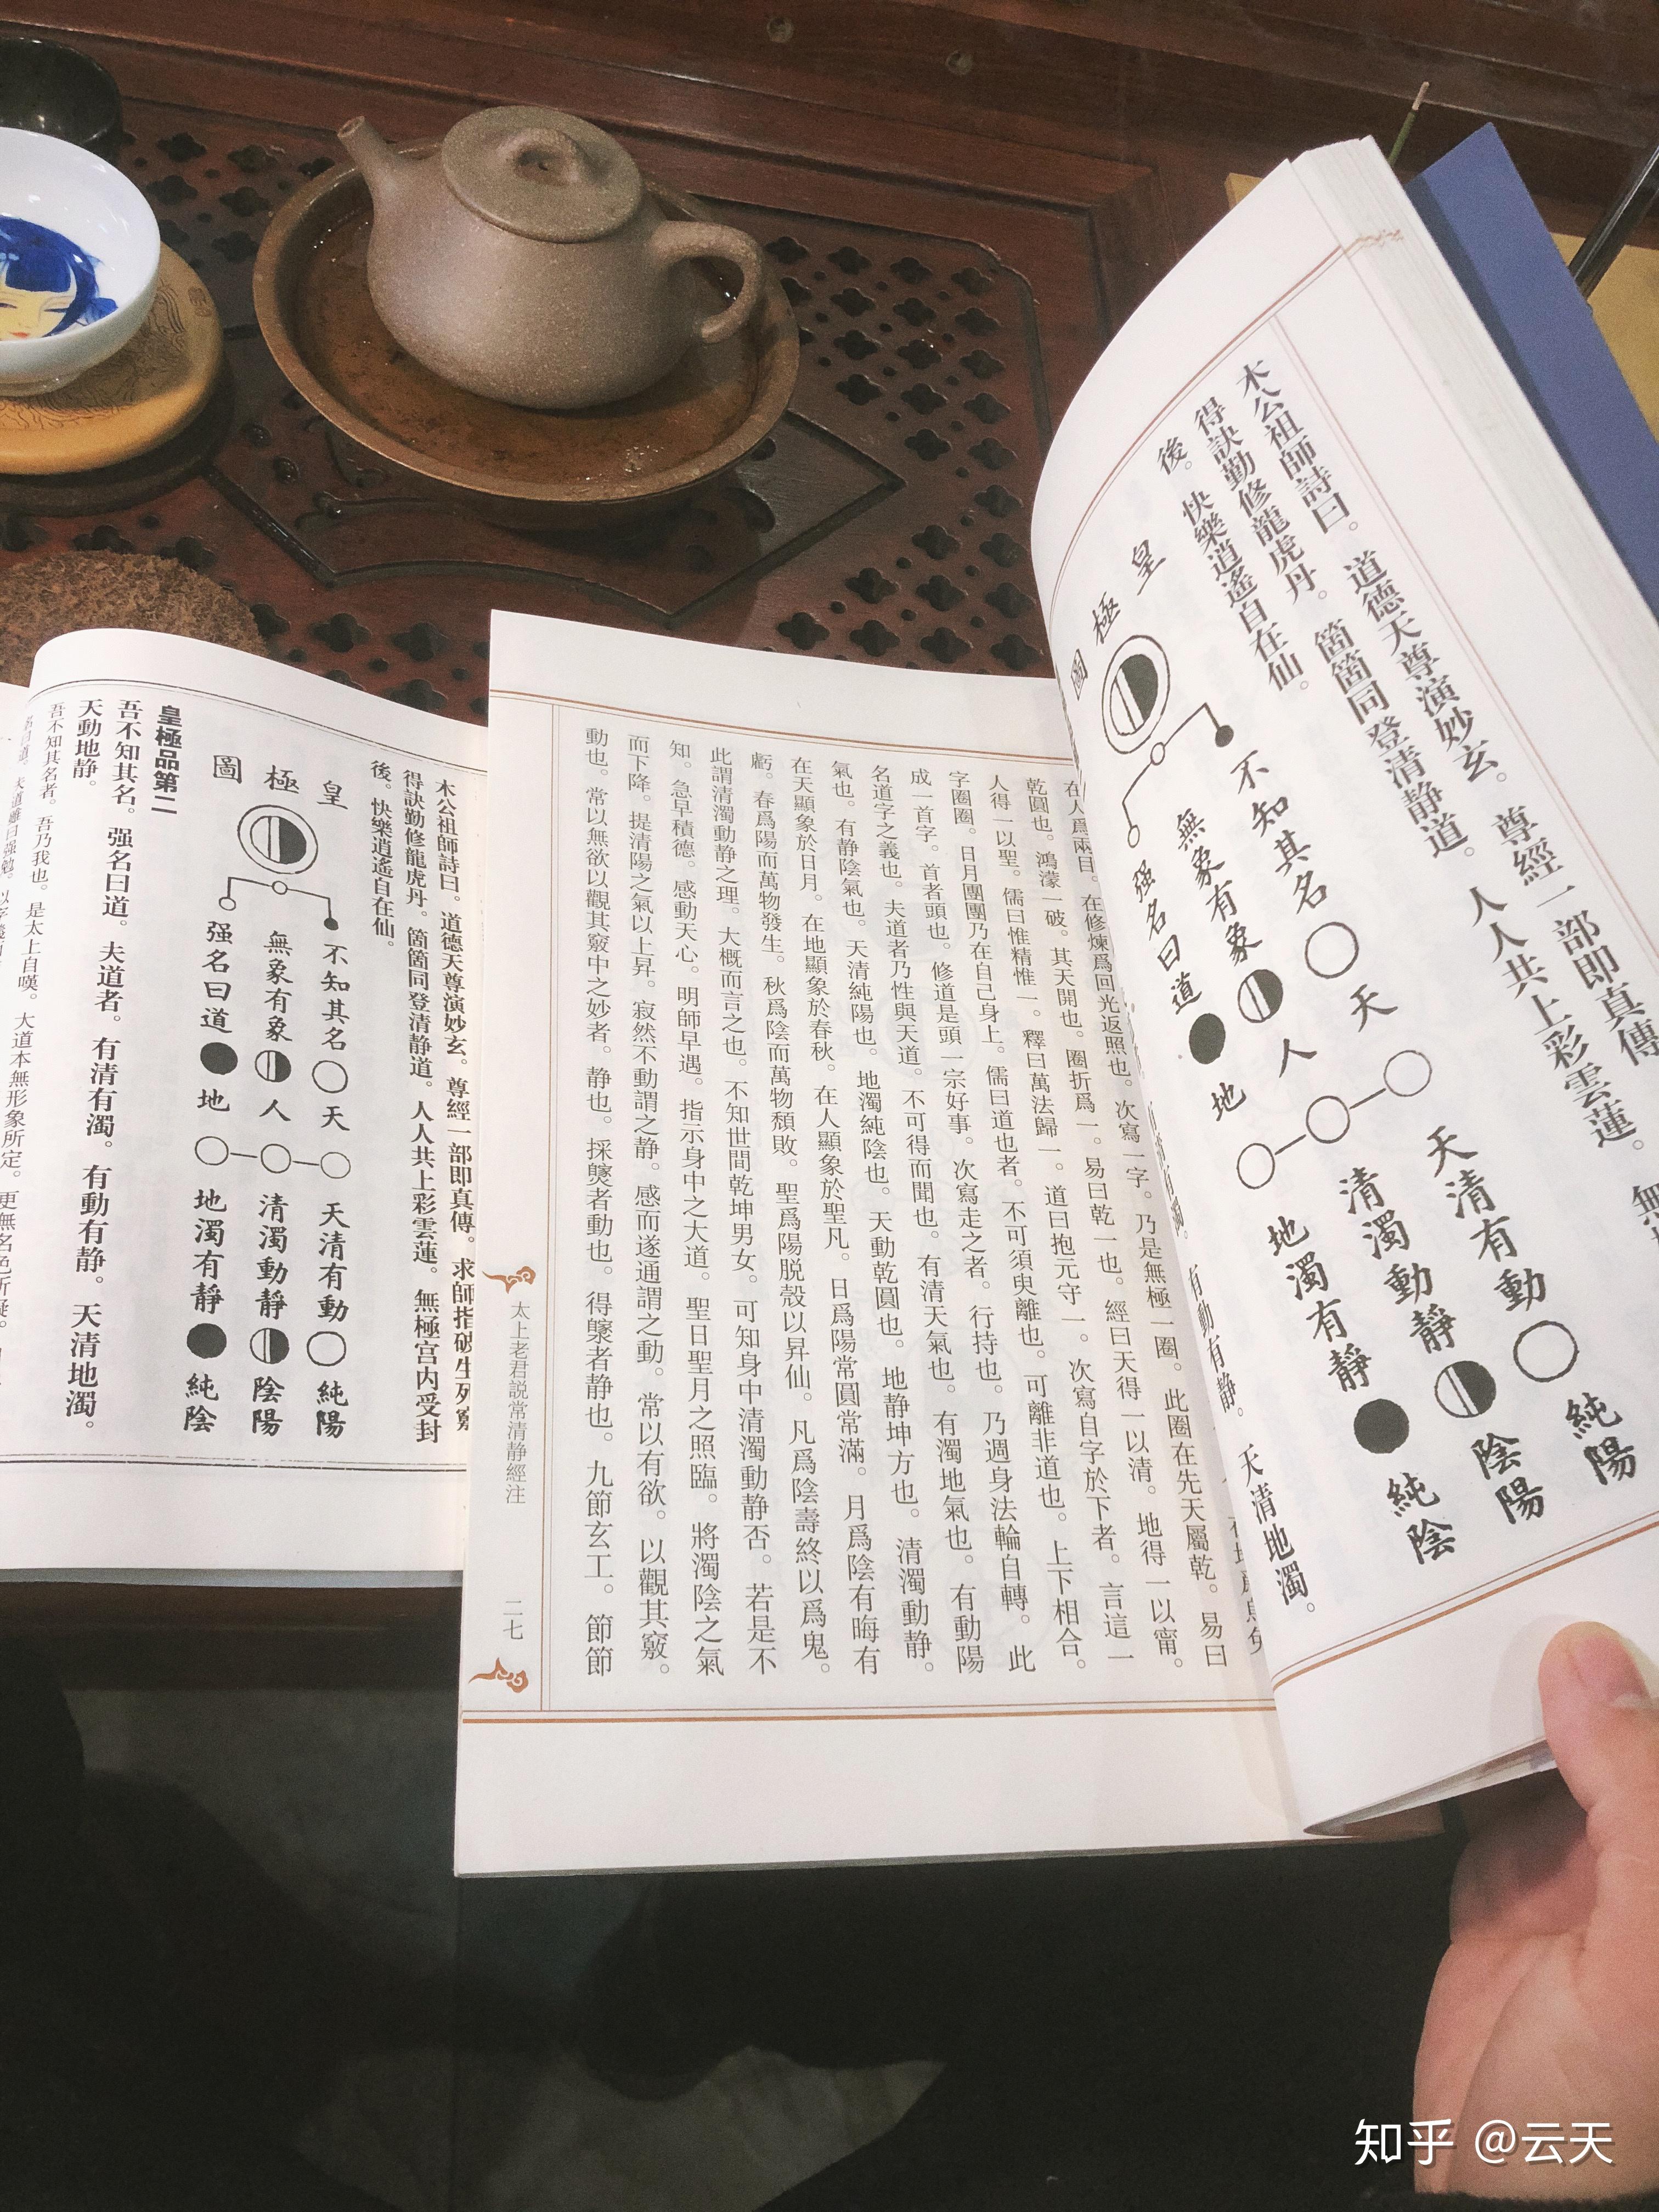 木公祖師詩曰。道德天尊演妙玄。尊經一部即真傳。
人人共上彩雲蓮。
得訣勤修龍虎丹。箇箇同登清静道。
後。快樂逍遙自在仙。
皇極圖
不知其名
天
天清有動
純陽
無象有象
人
清濁動靜
陰陽
强名曰道
地
地濁有靜
純陰
有動有静。天清地濁。
乾圓也。鴻濛一破。其天開也。圈折爲一。易曰乾一也。經曰天得一以清。地得一以甯。
人得一以聖。儒曰惟精惟一。釋曰萬法歸一。道曰抱元守一。次寫自字於下者。言這一
字圈圈。日月團團乃在自己身上。儒曰道也者。不可須臾離也。可離非道也。上下相合。
成一首字。首者頭也。修道是頭一宗好事。次寫走之者。行持也。乃週身法輪自轉。此
名道字之義也。夫道者乃性與天道。不可得而聞也。有清天氣也。有濁地氣也。有動陽
氣也。有静陰氣也。天清純陽也。地濁純陰也。天動乾圓也。地静坤方也。清濁動静。
在天顯象於日月。在地顯象於春秋。在人顯象於聖凡。日爲陽常圓常滿。月爲陰有晦有
虧。春爲陽而萬物發生。秋爲陰而萬物頹敗。聖爲陽脱殼以昇仙。凡爲陰壽終以爲鬼。
此謂清濁動静之理。大概而言之也。不知世間乾坤男女。可知身中清濁動静否。若是不
知。急早積德。感動天心。明師早遇。指示身中之大道。聖日聖月之照臨。將濁陰之氣
而下降。提清陽之氣以上昇。寂然不動謂之静。感而遂通謂之動。常以有欲。以觀其竅。
動也。常以無欲以觀其竅中之妙者。静也。採藥者動也。得藥者静也。九節玄工。節節
太上老君説常清静經注
二七
木公祖師詩曰。道德天尊演妙玄。尊經一部即真傳。求師指破生死竅
得訣勤修龍虎丹。箇箇同登清静道。人人共上彩雲蓮。無極宫内受封
後。快樂逍遙自在仙。
皇極圖
不知其名
天
天清有動
純陽
無象有象
人
清濁動靜
陰陽
强名曰道
地
地濁有靜
純陰
皇極品第二
吾不知其名。强名曰道。夫道者。有清有濁。有動有静。天清地濁。
天動地静。
吾不知其名者。吾乃我也。是太上自嘆。大道本無形象所定。更無名色所擬。
知乎 @云天